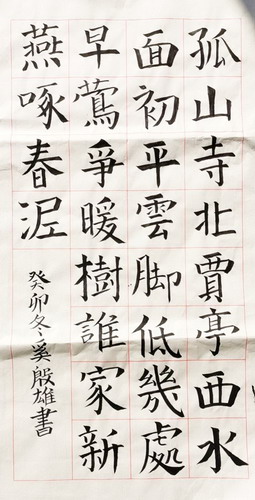 孤山寺北賈亭西水
面初平雲脚低幾處
早鶯爭暖樹誰家新
燕啄春泥
癸卯冬奚殷雄書